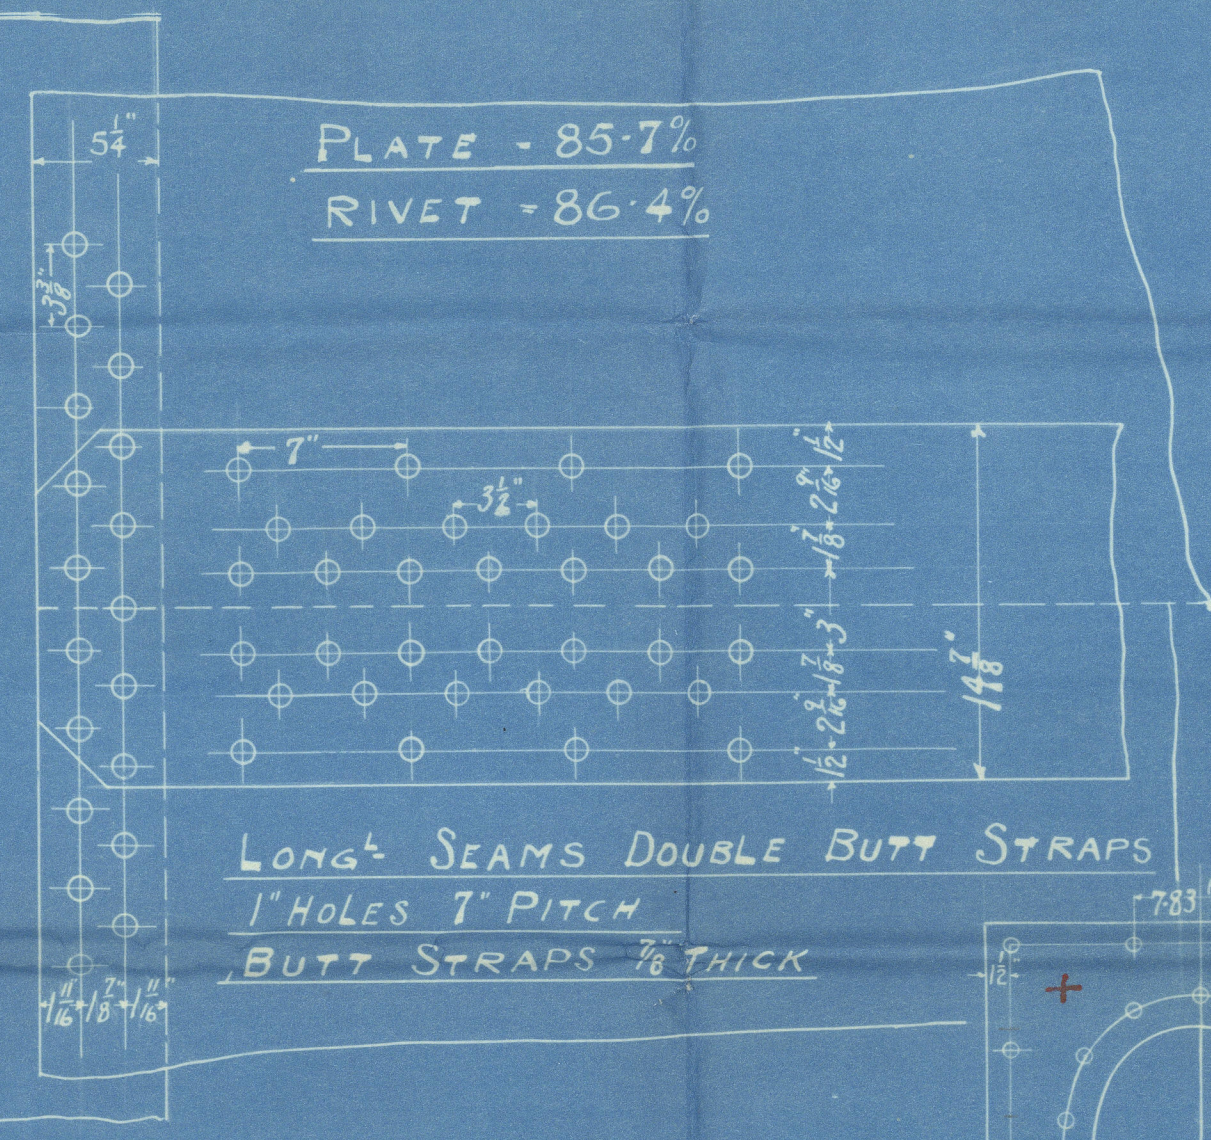 5 1/4"
PLATE - 85·7%
RIVET = 86·4%
3 3/8"
7"
3 1/2"
1 1/2" 2 9/16" 1 7/8" 3" 1 7/8" 2 9/16" 1 1/2"
14 7/8"
LONGL SEAMS DOUBLE BUTT STRAPS
1" HOLES 7" PITCH
BUTT STRAPS 7/8" THICK
7·83
1 1/2"
1 11/16" 1 7/8" 1 11/16"